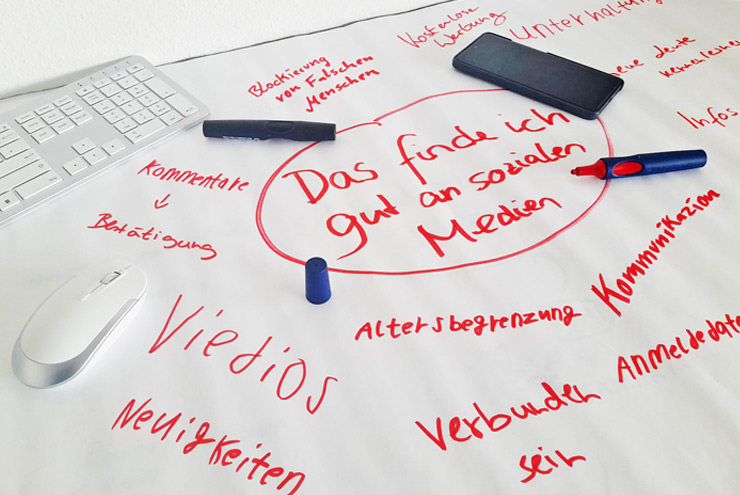 Kostenlose
Werbung
Unterhaltung
Blockierung
von Falschen
Menschen
neue Leute
kennenlernen
Infos
Das finde ich
gut an sozialen
Medien
Kommentare
↓
Bestätigung
Kommunikazion
Altersbegrenzung
Anmeldedate
Viedios
Verbunden
sein
Neuigkeiten